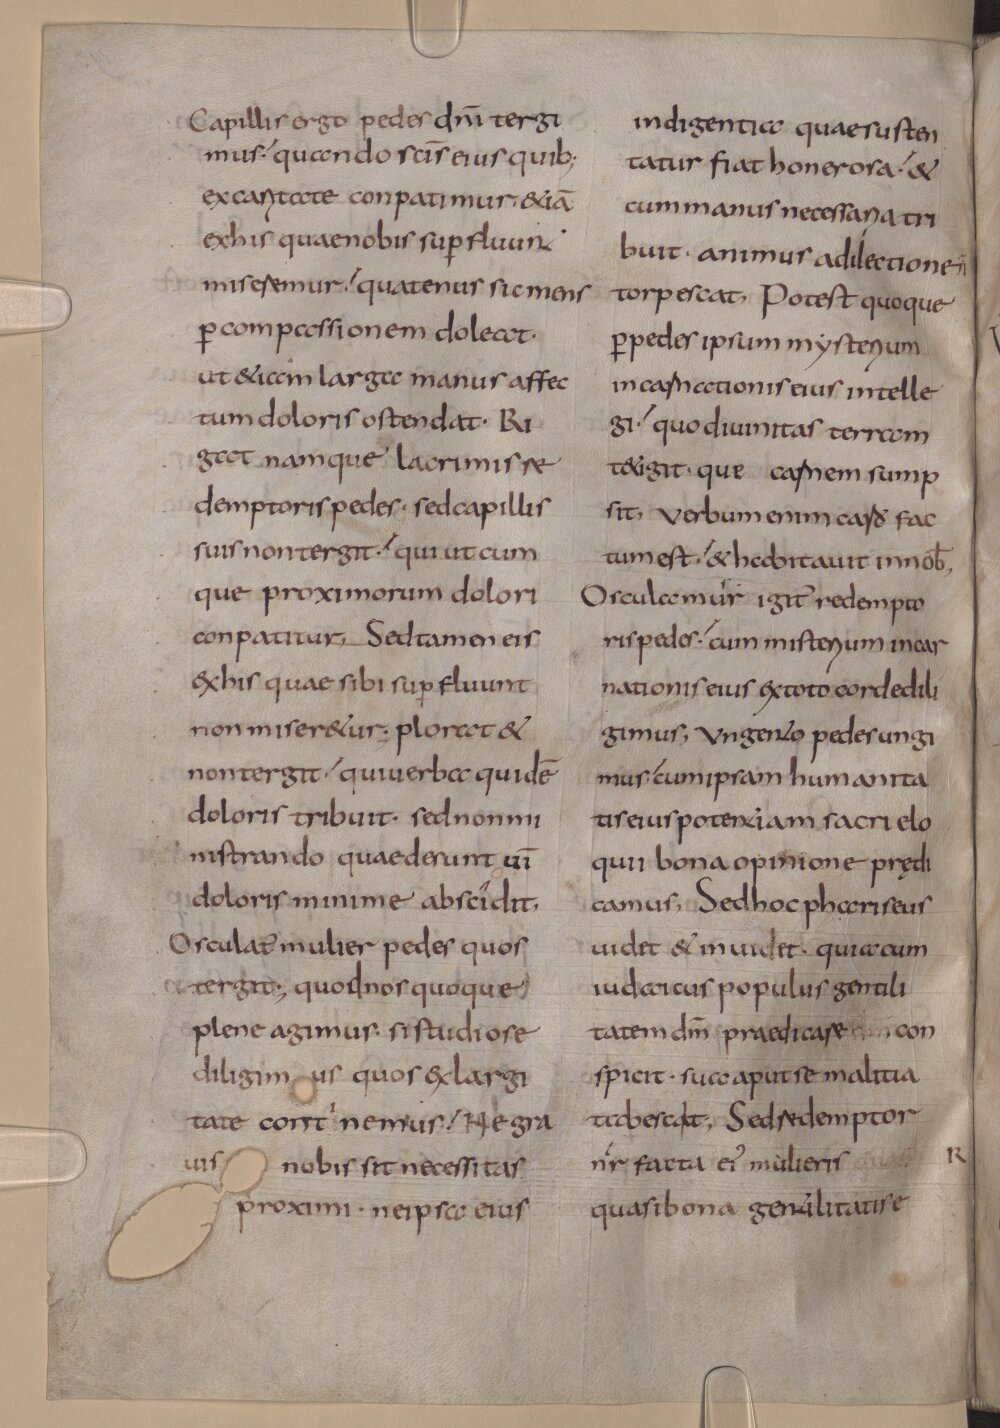 Capillis ergo pedes dnī tergi
mus. quando scīs eius quib;
ex caritate conpatimur, &iā
ex his quae nobis sup fluunt
miseremur. quatenus sic mens
p compassionem doleat.
ut &iam larga manus affec
tum doloris ostendat. Ri
gat namque lacrimis re
demptoris pedes. sed capillis
suis non tergit. qui ut cum
que proximorum dolori
conpatitur, Sed tamen eis
ex his quae sibi sup fluunt
non miser&ur. plorat &
non tergit. qui uerba quidē
doloris tribuit. sed non mi
nistrando quae derunt uī
doloris minime abscidit,
Osculat mulier pedes quos
tergit; quod nos quoque
plene agimus. si studiose
diligimus quos ex largi
tate continemus. Ne gra
uis nobis sit necessitas
proximi. ne ipsa eius
indigentia quae susten
tatur fiat honerosa. &
cum manus necessaria tri
buit. animus a dilectione
torpescat, Potest quoque
p pedes ipsum mysterium
incarnationis eius intelle
gi. quo diuinitas terram
t&igit. que carnem sump
sit, Verbum enim caro fac
tum est. & habitauit in nob,
Osculamur igit redempto
ris pedes. cum misterium incar
nationis eius ex toto corde dili
gimus, Vngento pedes ungi
mus. cum ipsam humanita
tis eius potentiam sacri elo
quii bona opinione prędi
camus, Sed hoc phariseus
uidet & inuidet. quia cum
iudaicus populus gentili
tatem dm̄ praedicare con
spicit. sua aput se malitia
tabescit, Sed redemptor
nr facta ei mulieris
quasi bona gentilitatis e
R